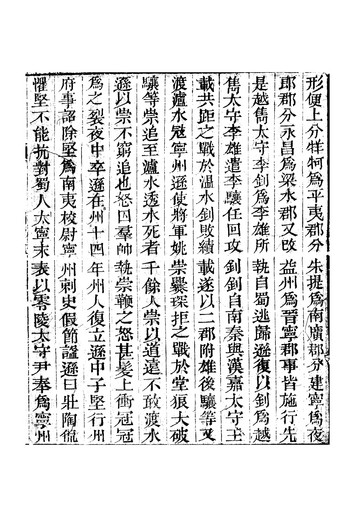 形便上分牂牁爲平夷郡分朱提爲南廣郡分建寧爲夜
郎郡分永昌爲梁水郡又改益州爲晉寧郡事皆施行先
是越巂太守李釗爲李雄所執自蜀逃歸遜復以釗爲越
巂太守李雄遣李驤任回攻釗釗自南秦與漢嘉太守王
載共距之戰於溫水釗敗績載遂以二郡附雄後驤等又
渡瀘水寇寧州遜使將軍姚崇爨琛拒之戰於堂狼大破
驤等崇追至瀘水透水死者千餘人崇以道遠不敢渡水
遜以崇不窮追也怒囚羣帥執崇鞭之怒甚髮上衝冠冠
爲之裂夜中卒遜在州十四年州人復立遜中子堅行州
府事詔除堅爲南夷校尉寧州刺史假節諡遜曰壯陶侃
懼堅不能抗對蜀人太寧末表以零陵太守尹奉爲寧州